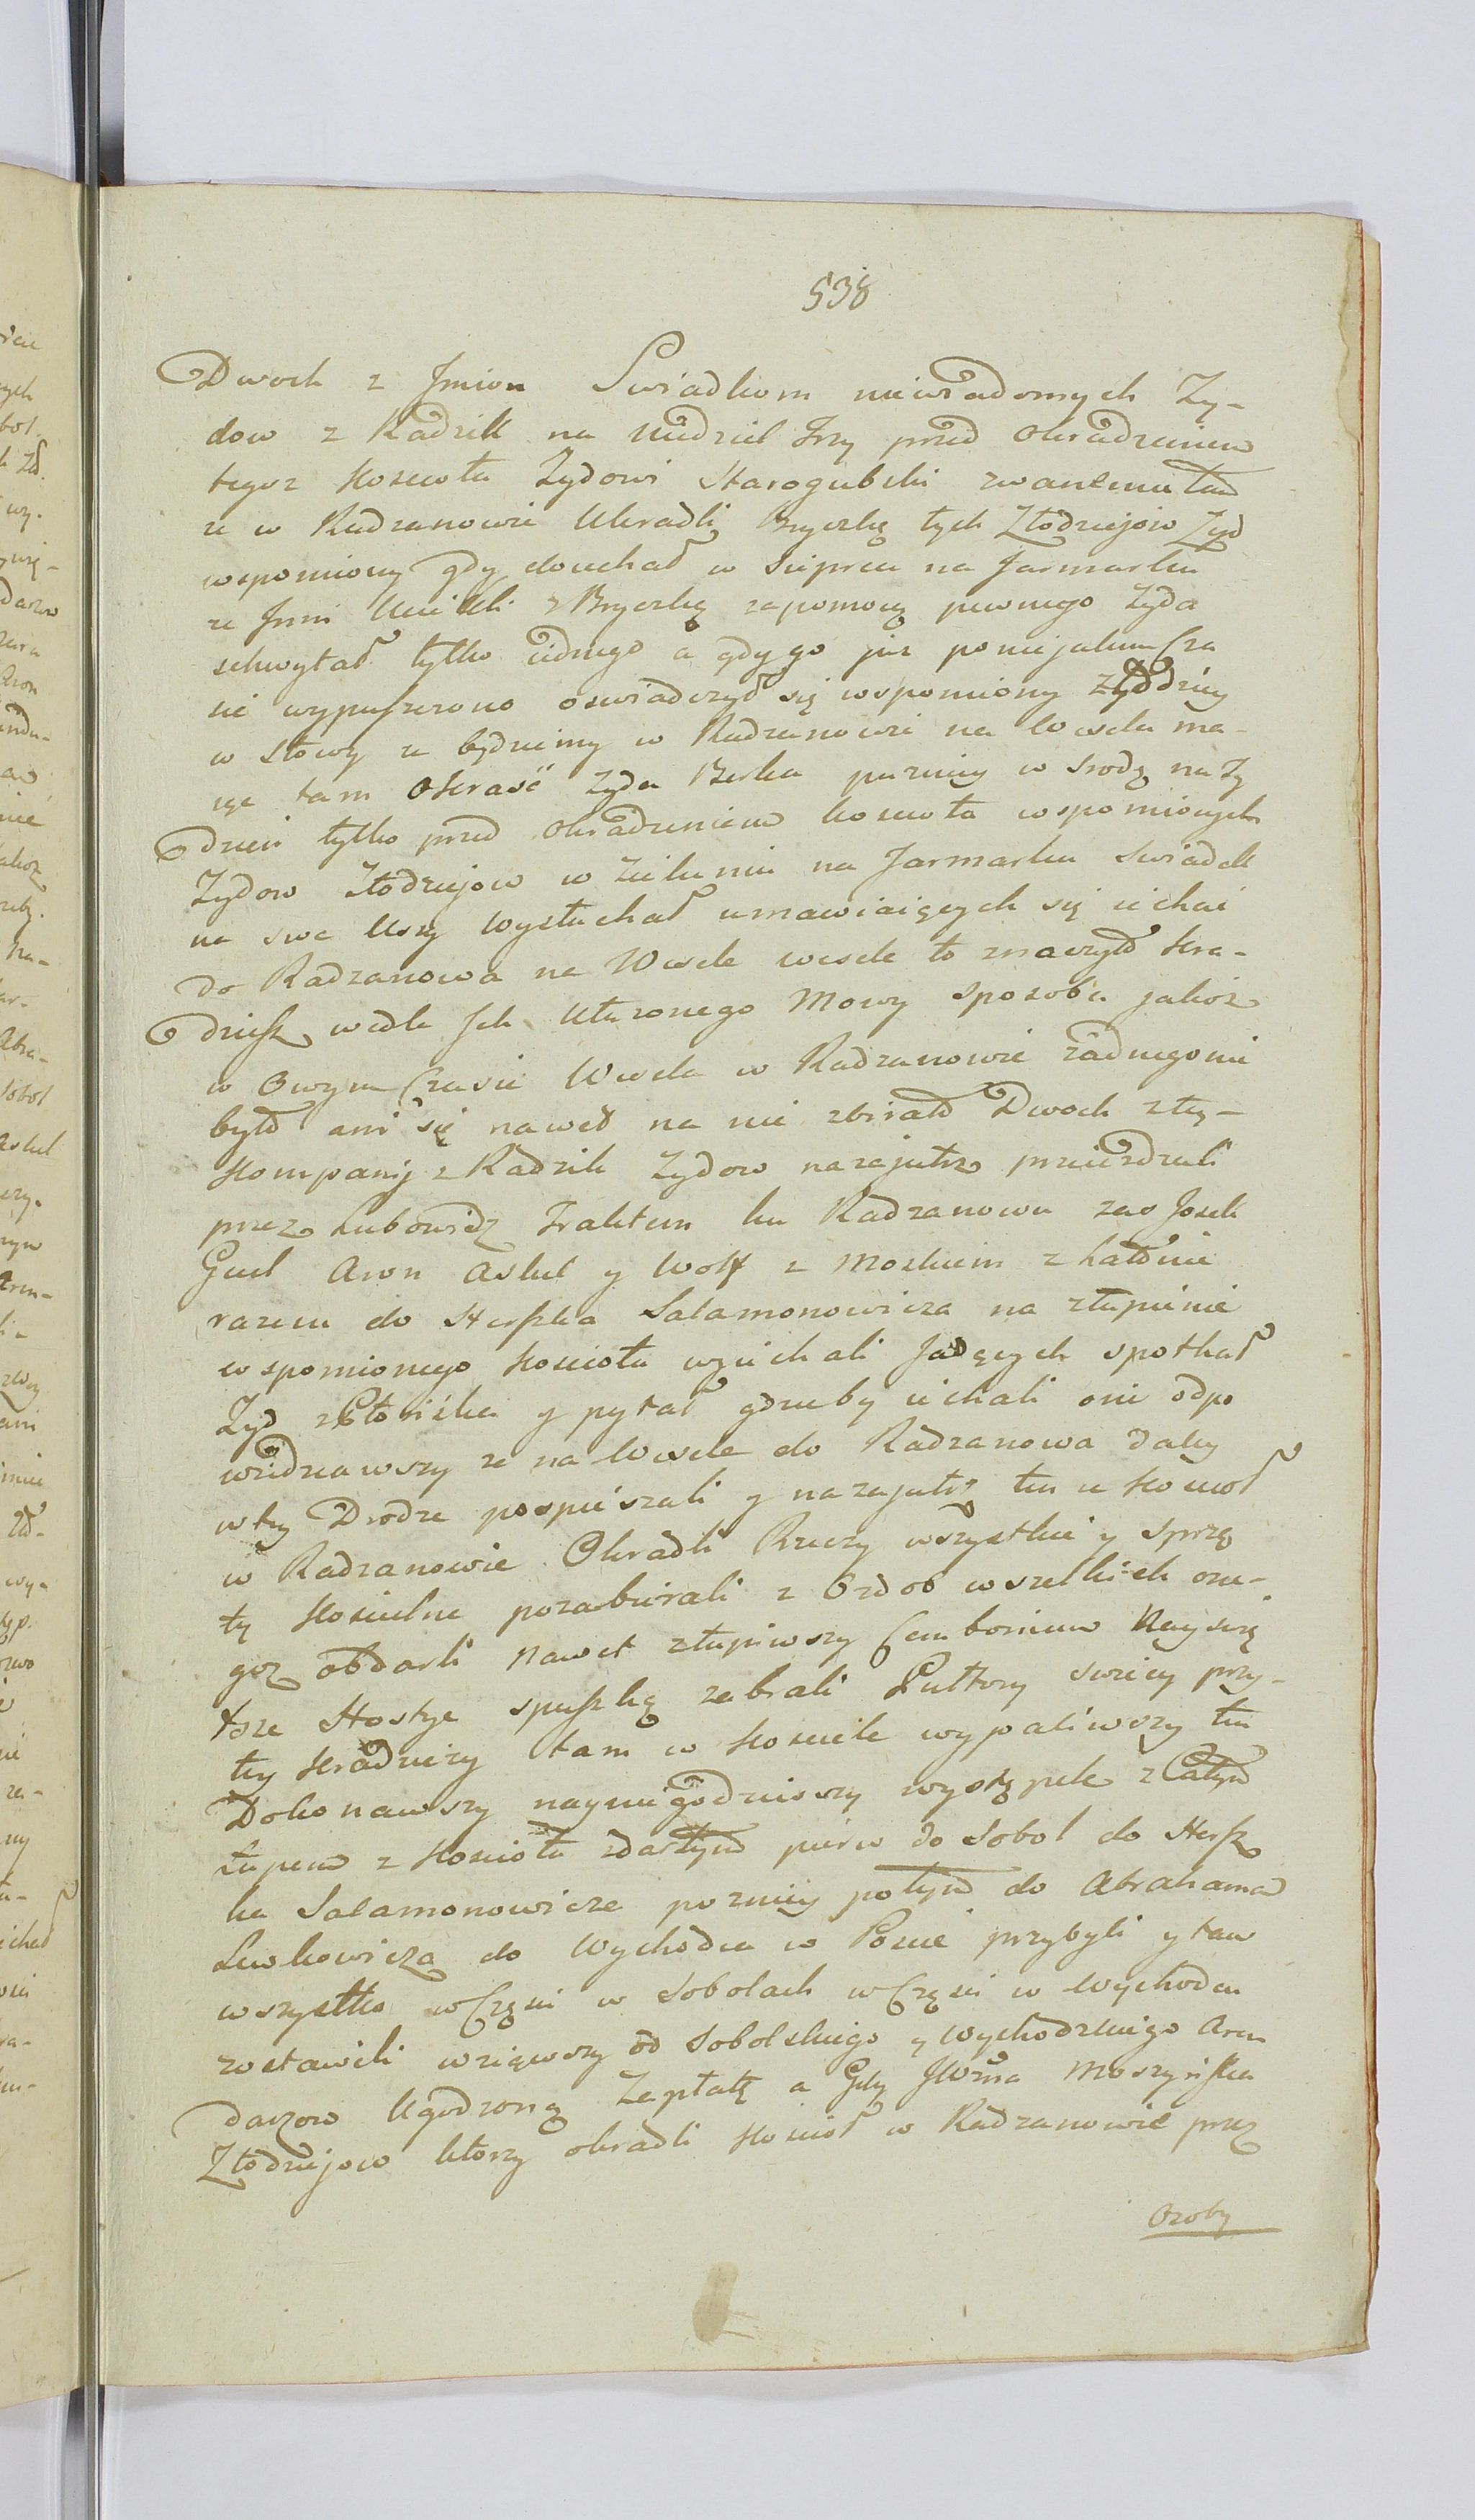 538
Dwoch z Jmion Swiadkom niewiadomych Zy-
dow z Radzik na niedziel Trzy przed Okradzeniem
tegoz Koscioła Zydowi Starogubski zwanemu tam
ze w Radzanowie Ukradli Bryczkę tych Złodziejow Zyd
wspomiony gdy douchał w Sieprcu na Jarmarku
ze Jnni Uciekli z Bryczką zapomocą pewnego Zyda
schwytał tylko iednego a gdy go juz po niejakim Cza
sie wypuszczono oswiadczył się wspomiony Złodziey
w słowy ze będziemy w Radzanowie na Weselu ma-
iąc tam Okraść Zyda Berka puzniey w Srodę naTy
dzien tylko przed Okradzeniem Koscioła wspomionych
Zydow Złodziejow w Zieluniu na Jarmarku Swiadek
na swe Uszy Wysłuchał umawiaiących się iechać
do Radzanowa na Wesele wesele to znaczyło Kra-
dziesz wedle Jch Utazonego Mowy sposobu jakoz
w Owym Czasie Wesela w Radzanowie zadnego nie
było ani się nawet na nie zbirało Dwoch z tey-
Kompanij z Radzik Zydow nazajutrz przeiezdzali
przez Lubowidz Traktem ku Radzanowu zas Josek
Gecl Aron Askel y Wolf z Moskiem z Ratowie
razem do Herszka Salamonowicza na złupienie
wspomionego Kosciola wyiechali Jadących spotkał
Zyd z Płosiska y pytał gdzieby iechali oni odpo
wiedziawszy ze na Wesele do Radzanowa daley
w tey Drodze pospieszali y nazajutrz tu u Kosciol
w Radzanowie Okradli Rzeczy wszystkie y sprzę
ty Koscielne pozabierali z Ozdob wszelkich one-
goz obdarli nawet złupiwszy Cemborium Nayswię
tsze Hostye spuszkę zabrali Pułtory swiecy przy-
tey Kradziezy tam w Kosciele wypaliwszy tu
Dokonawszy naynigodniszy występek z Całym
Łupem z Kosciola zdartym pierw do Sobol do Hersz
ka Salamonowicza pozniey potym do Abrahama
Lewkowicza do Wychodca w Poscie przybyli y tam
wszystko wCzęsci w Sobolach wCzęsci w Wychodcu
zostawili wziąwszy od Sobolskiego y Wychodzkiego Aren
darzow Ugodzoną Zapłatę a Gdy JWna Moszynska
Złodziejow ktorzy okradli Kosciol w Radzanowie przez
Ozoby